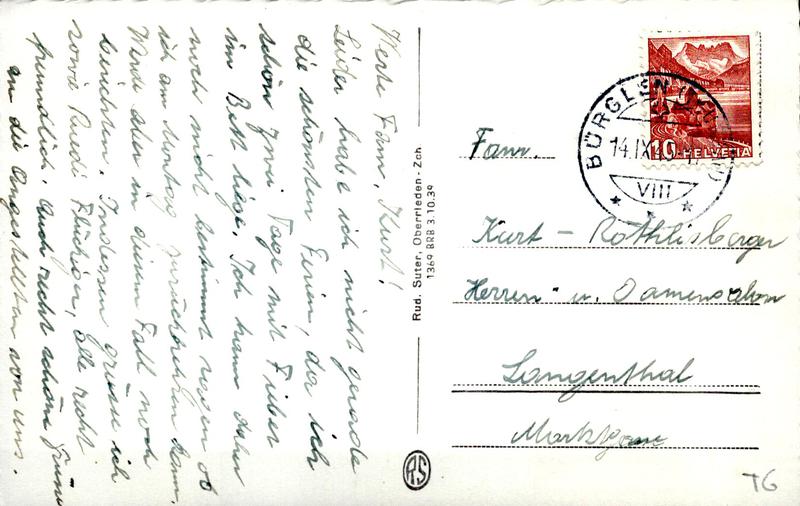 Werte Fam. Kurt!
Leider habe ich nicht gerade
die schönsten Ferien, da ich
schon zwei Tage mit Fieber
im Bett liege. Ich kann daher
noch nicht bestimmt sagen ob
ich am Montag zurückkehren kann.
Werde aber in diesem Fall noch
berichten. Indessen grüsse ich
sowie Ruedi Flückiger, alle recht
freundlich. Auch recht schöne Grüsse
an die Angestellten von uns.
Rud. Suter, Oberrieden - Zch
1369 BRB 3.10.39
RS
BÜRGLEN
14.IX
VIII
10 HELVETIA
Fam.
Kurt - Röthlisberger
Herren- u. Damensalon
Langenthal
Marktgasse
TG